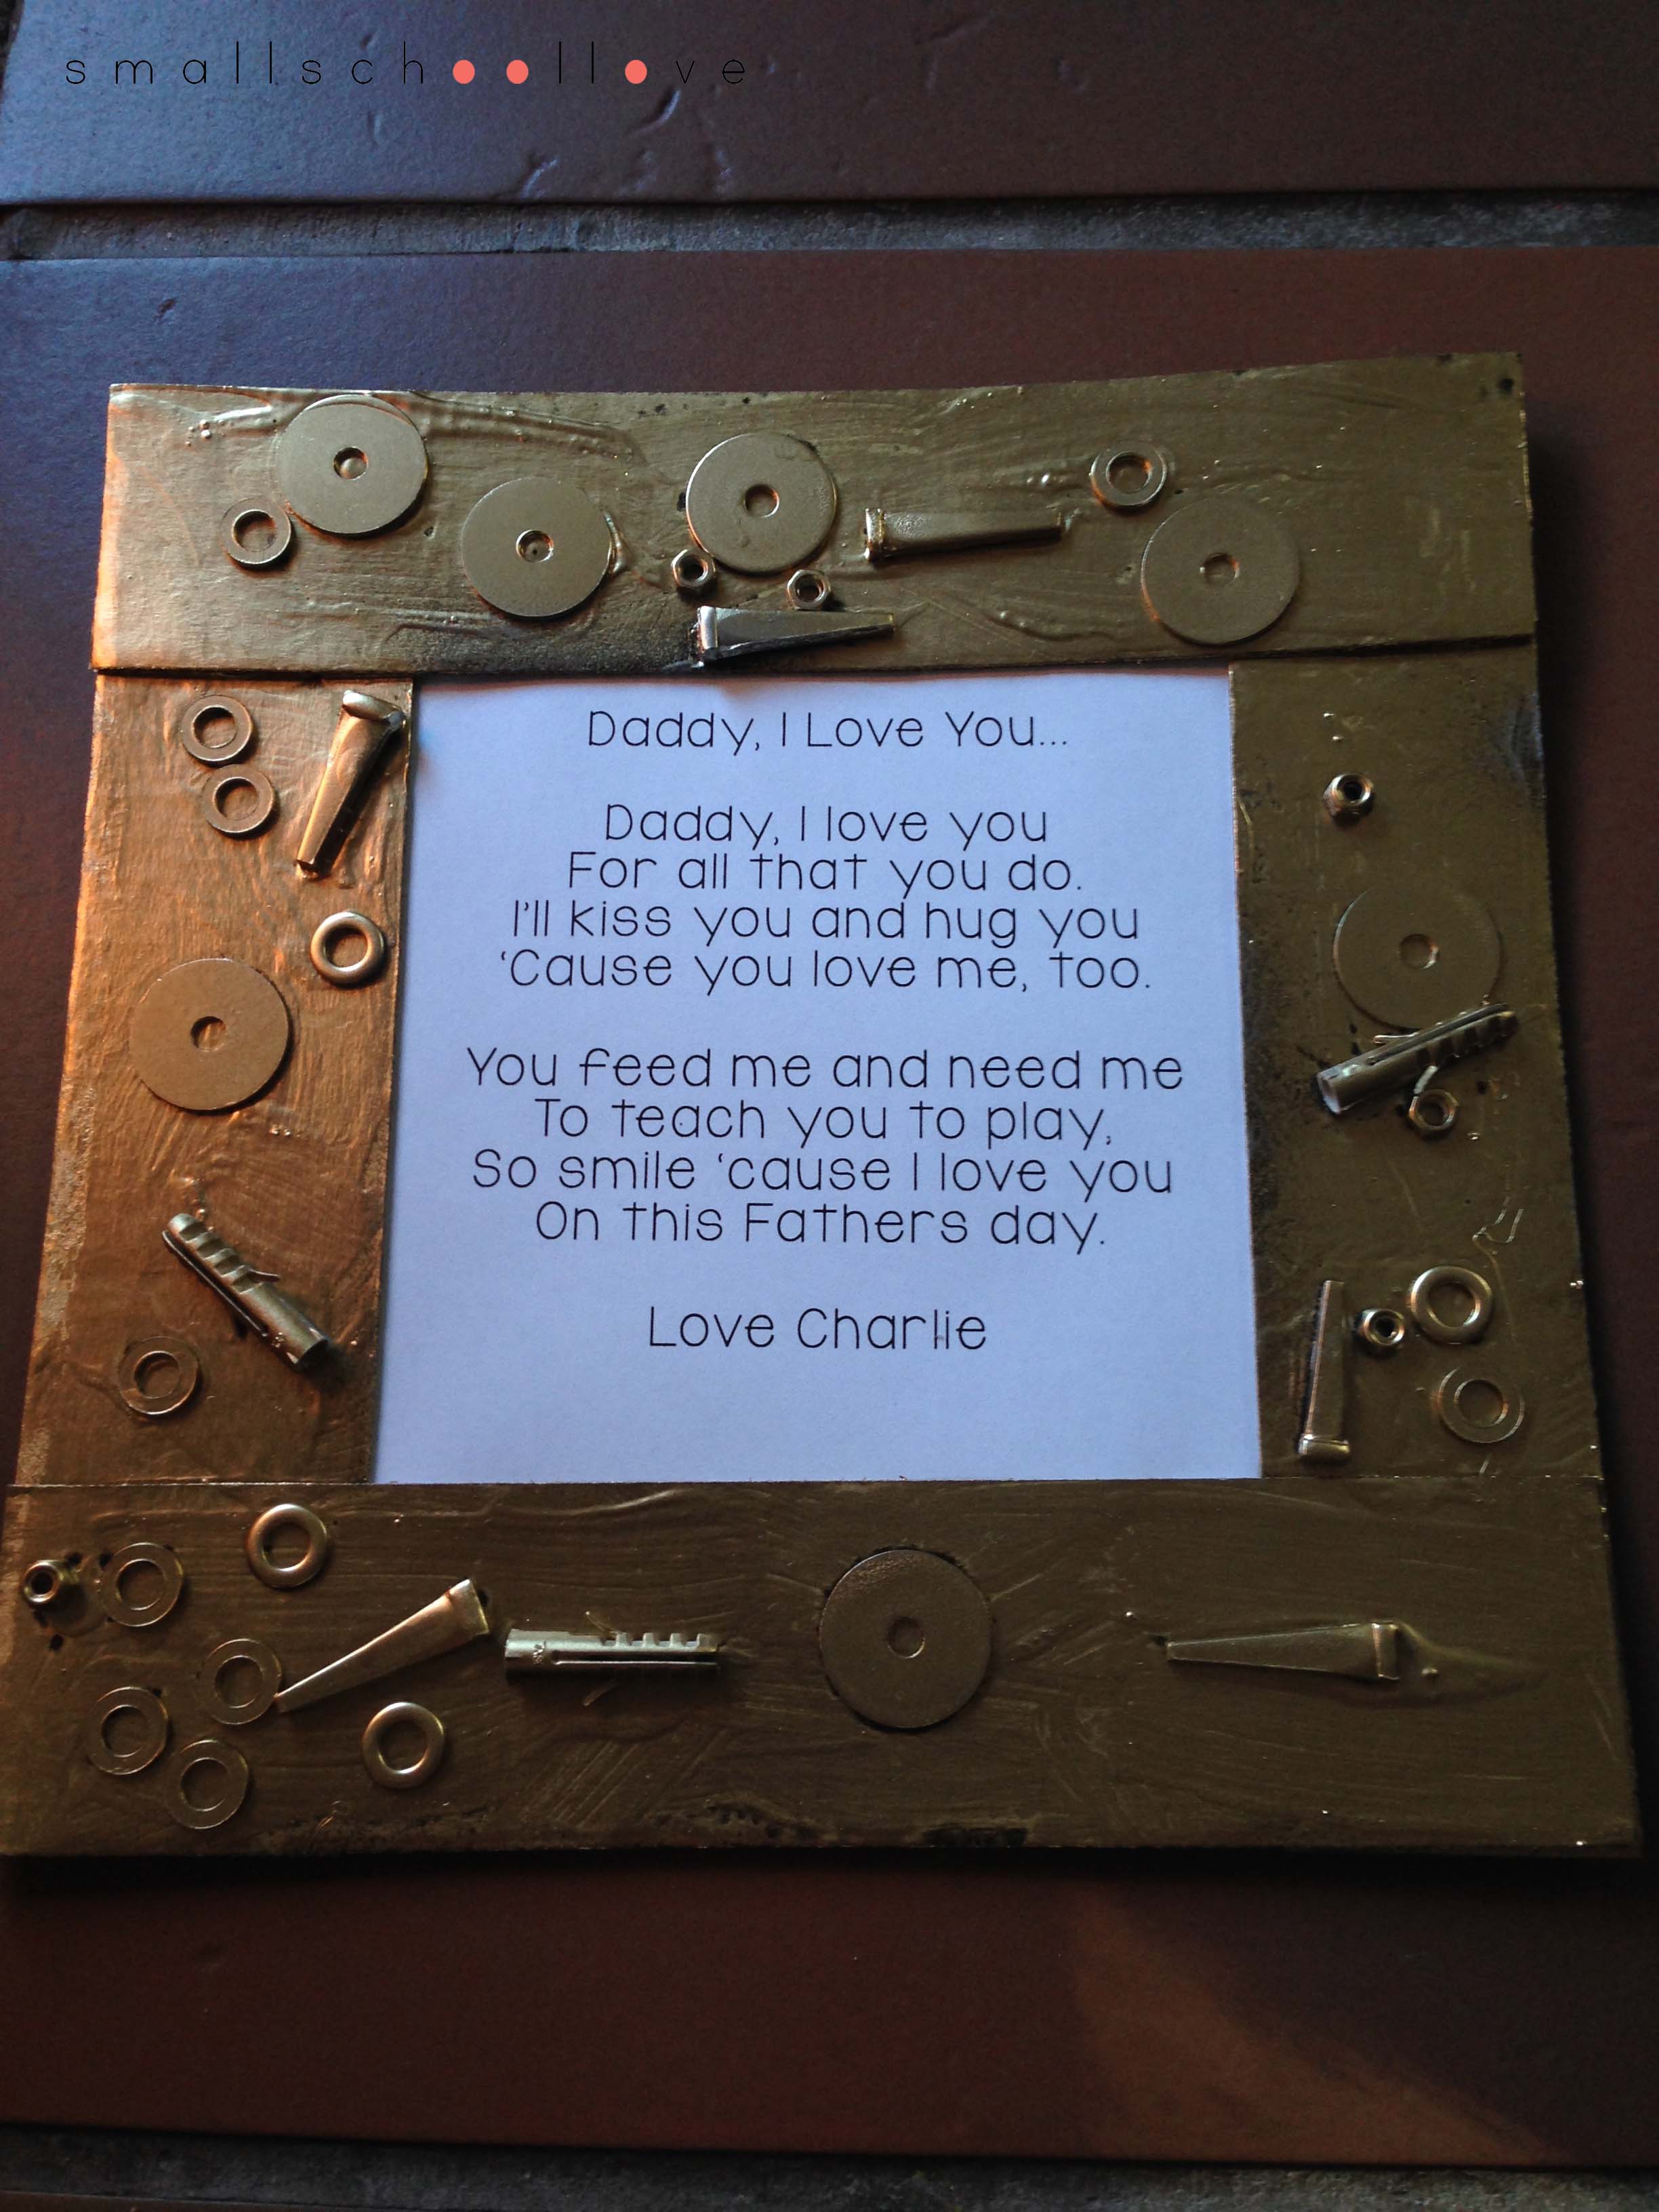 smallschoollove
Daddy, I Love You...
Daddy, I love you
For all that you do.
I'll kiss you and hug you
'Cause you love me, too.
You feed me and need me
To teach you to play,
So smile 'cause I love you
On this Fathers day.
Love Charlie